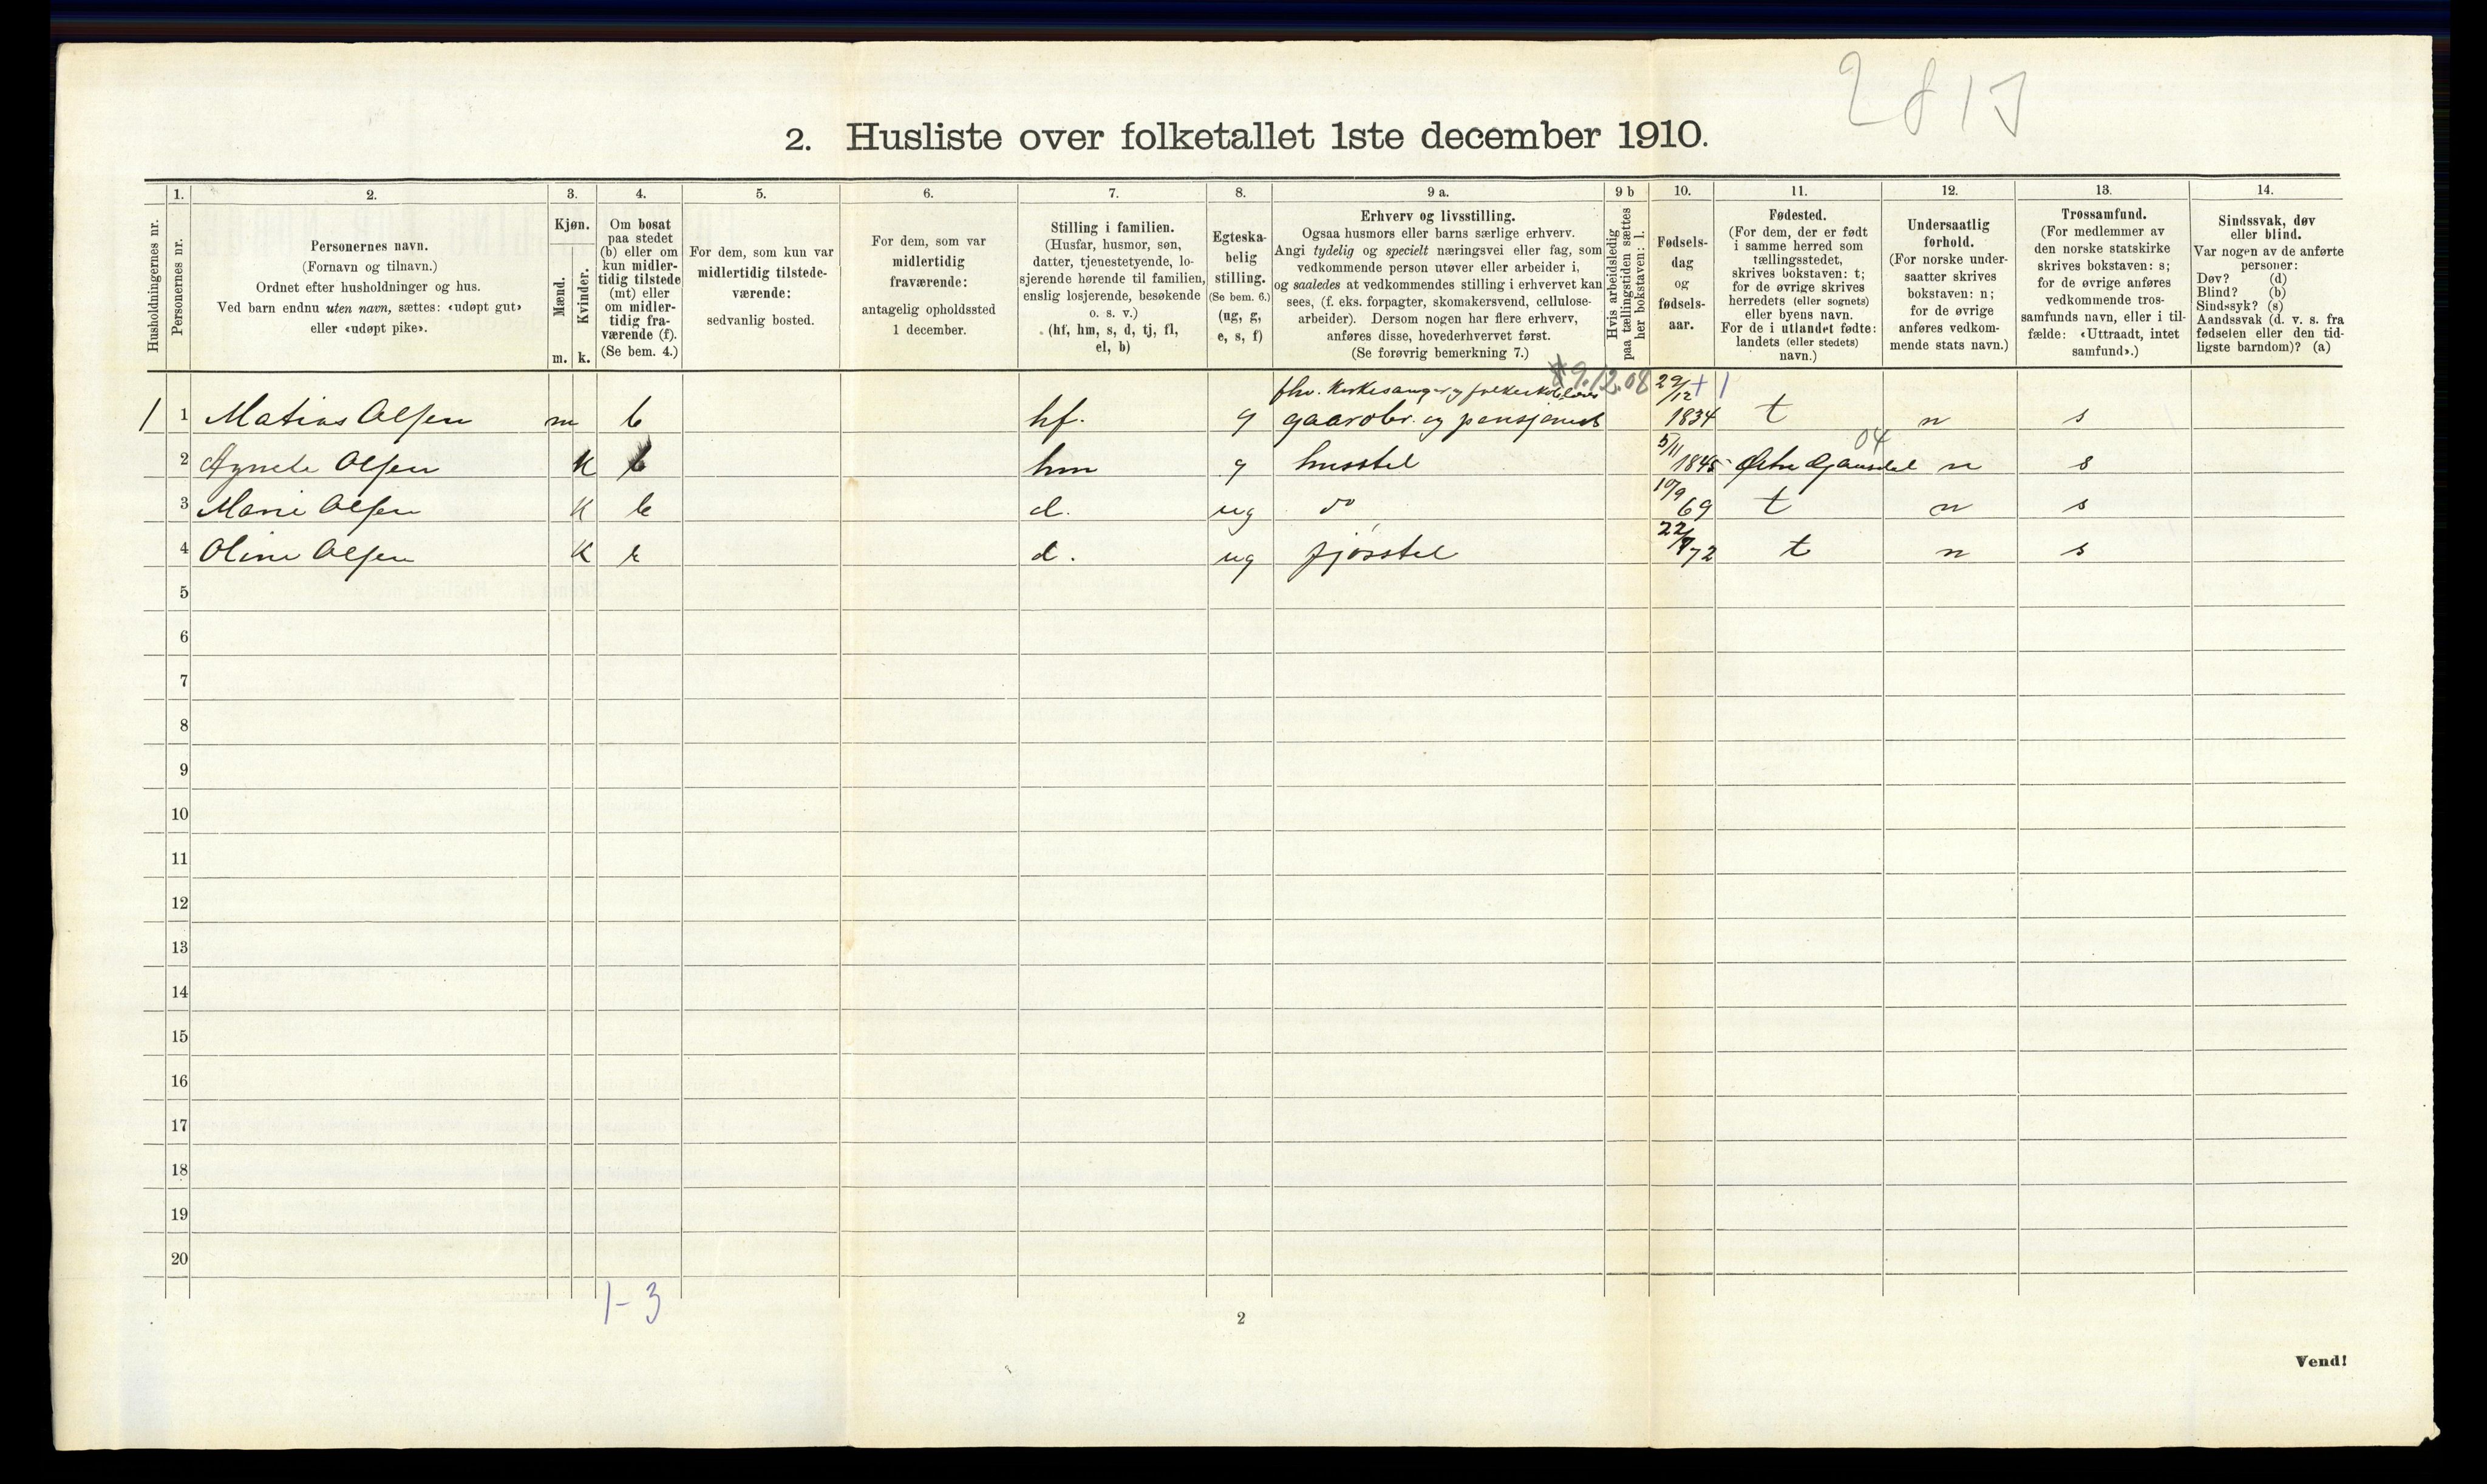 2813
2. Husliste over folketallet 1ste december 1910.
Husholdningernes nr.
1.
Personernes nr.
2.
Personernes navn.
(Fornavn og tilnavn.)
Ordnet efter husholdninger og hus.
Ved barn endnu uten navn, sættes: «udøpt gut»
eller «udøpt pike».
3.
Kjøn.
Mænd.
Kvinder.
m. k.
4.
Om bosat
paa stedet
(b) eller om
kun midler-
tidig tilstede
(mt) eller
om midler-
tidig fra-
værende (f).
(Se bem. 4.)
5.
For dem, som kun var
midlertidig tilstede-
værende:
sedvanlig bosted.
6.
For dem, som var
midlertidig
fraværende:
antagelig opholdssted
1 december.
7.
Stilling i familien.
(Husfar, husmor, søn,
datter, tjenestetyende, lo-
sjerende hørende til familien,
enslig losjerende, besøkende
o. s. v.)
(hf, hm, s, d, tj, fl,
el, b)
8.
Egteska-
belig
stilling.
(Se bem. 6.)
(ug, g,
e, s, f)
9 a.
Erhverv og livsstilling.
Ogsaa husmors eller barns særlige erhverv.
Angi tydelig og specielt næringsvei eller fag, som
vedkommende person utøver eller arbeider i,
og saaledes at vedkommendes stilling i erhvervet kan
sees, (f. eks. forpagter, skomakersvend, cellulose-
arbeider). Dersom nogen har flere erhverv,
anføres disse, hovederhvervet først.
(Se forøvrig bemerkning 7.)
9 b
Hvis arbeidsledig
paa tællingstiden sættes
her bokstaven: l.
10.
Fødsels-
dag
og
fødsels-
aar.
11.
Fødested.
(For dem, der er født
i samme herred som
tællingsstedet,
skrives bokstaven: t;
for de øvrige skrives
herredets (eller sognets)
eller byens navn.
For de i utlandet fødte:
landets (eller stedets)
navn.)
12.
Undersaatlig
forhold.
(For norske under-
saatter skrives
bokstaven: n;
for de øvrige
anføres vedkom-
mende stats navn.)
13.
Trossamfund.
(For medlemmer av
den norske statskirke
skrives bokstaven: s;
for de øvrige anføres
vedkommende tros-
samfunds navn, eller i til-
fælde: «Uttraadt, intet
samfund».)
14.
Sindssvak, døv
eller blind.
Var nogen av de anførte
personer:
Døv? (d)
Blind? (b)
Sindssyk? (s)
Aandssvak (d. v. s. fra
fødselen eller den tid-
ligste barndom)? (a)
9.12.08
fhv. Kirkesanger og 29/12 + 1
1 1 Matias Olsen m b hf. g gaardbr. og pensjonist 1834 t n s
04
2 Agnete Olsen k b hm g husstel 5/11 1845 Østre Gausdal n s
3 Marie Olsen k b d. ug do 10/9 69 t n s
4 Oline Olsen k b d. ug fjøsstel 22/ 72 t n s
5
6
7
8
9
10
11
12
13
14
15
16
17
18
19
20
1-3
2
Vend!